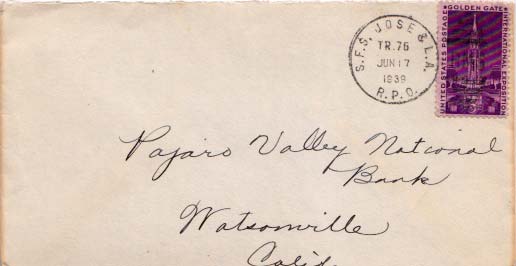 S.F.S. JOSE & L.A.
TR.76
JUN 17
1939
R.P.O.
GOLDEN GATE
INTERNATIONAL EXPOSITION
UNITED STATES POSTAGE
Pajaro Valley National
Bank
Watsonville
Calif